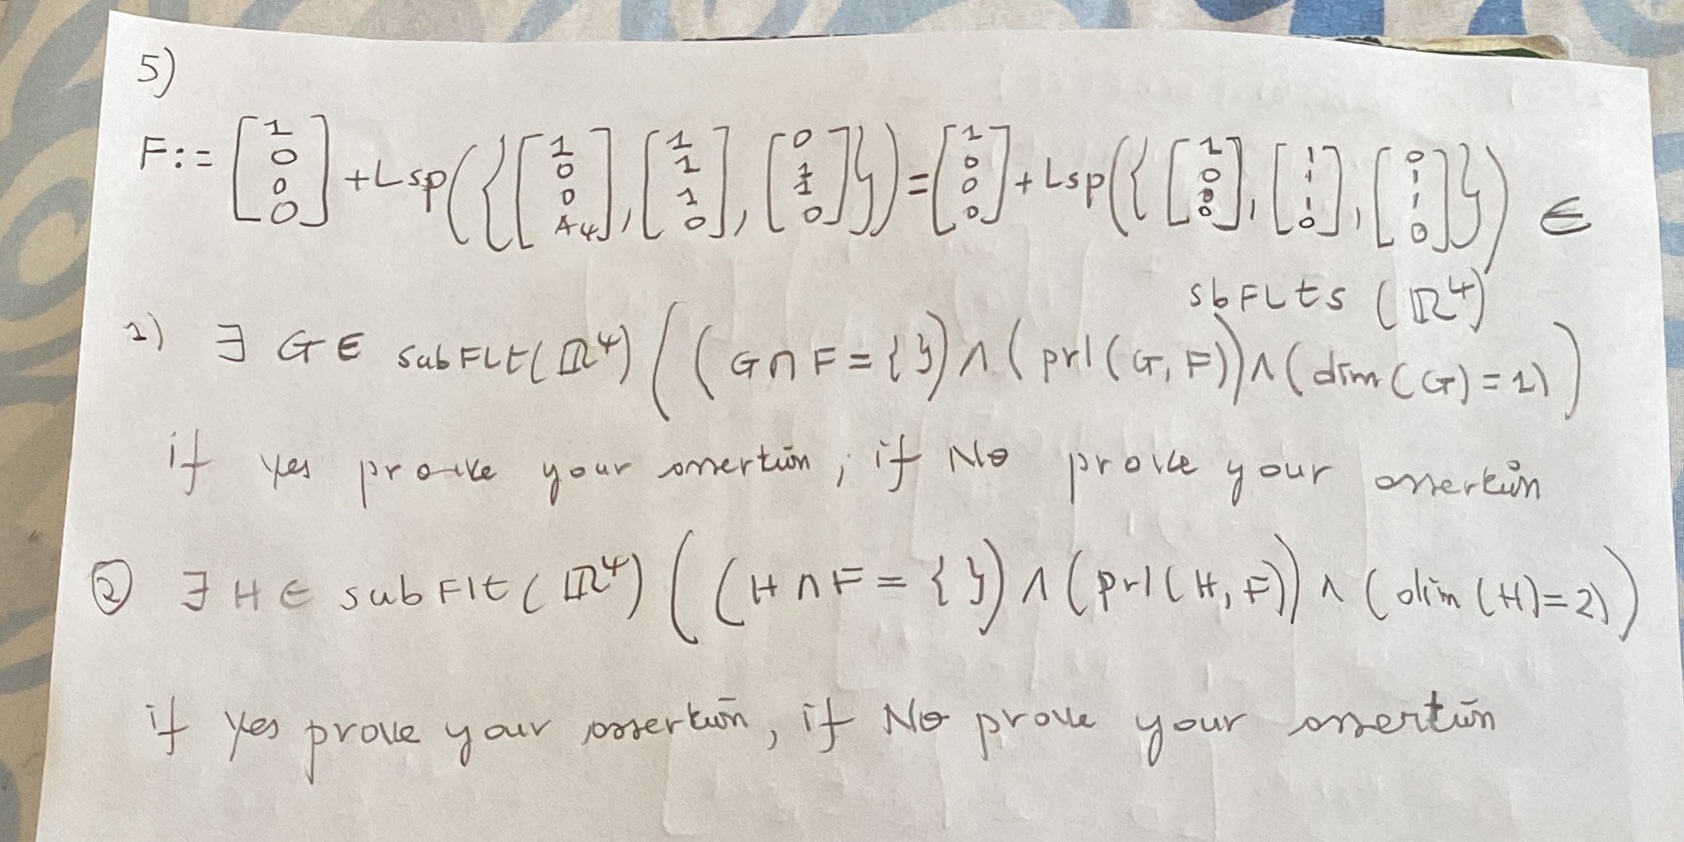 5)
F := [1 0 0 0] + Lsp({[1 0 0 A4], [1 1 1 0], [0 1 1 0]}) = [1 0 0 0] + Lsp({[1 0 0 0], [1 1 1 0], [0 1 1 0]}) ∈
sbFLts (ℝ⁴)
1) ∃ G ∈ subFLt(ℝ⁴) ((G ∩ F = { }) ∧ (prl(G, F)) ∧ (dim(G) = 1))
if yes prove your assertion, if No prove your assertion
② ∃ H ∈ subFlt(ℝ⁴) ((H ∩ F = { }) ∧ (prl(H, F)) ∧ (dim(H) = 2))
if yes prove your assertion, if No prove your assertion